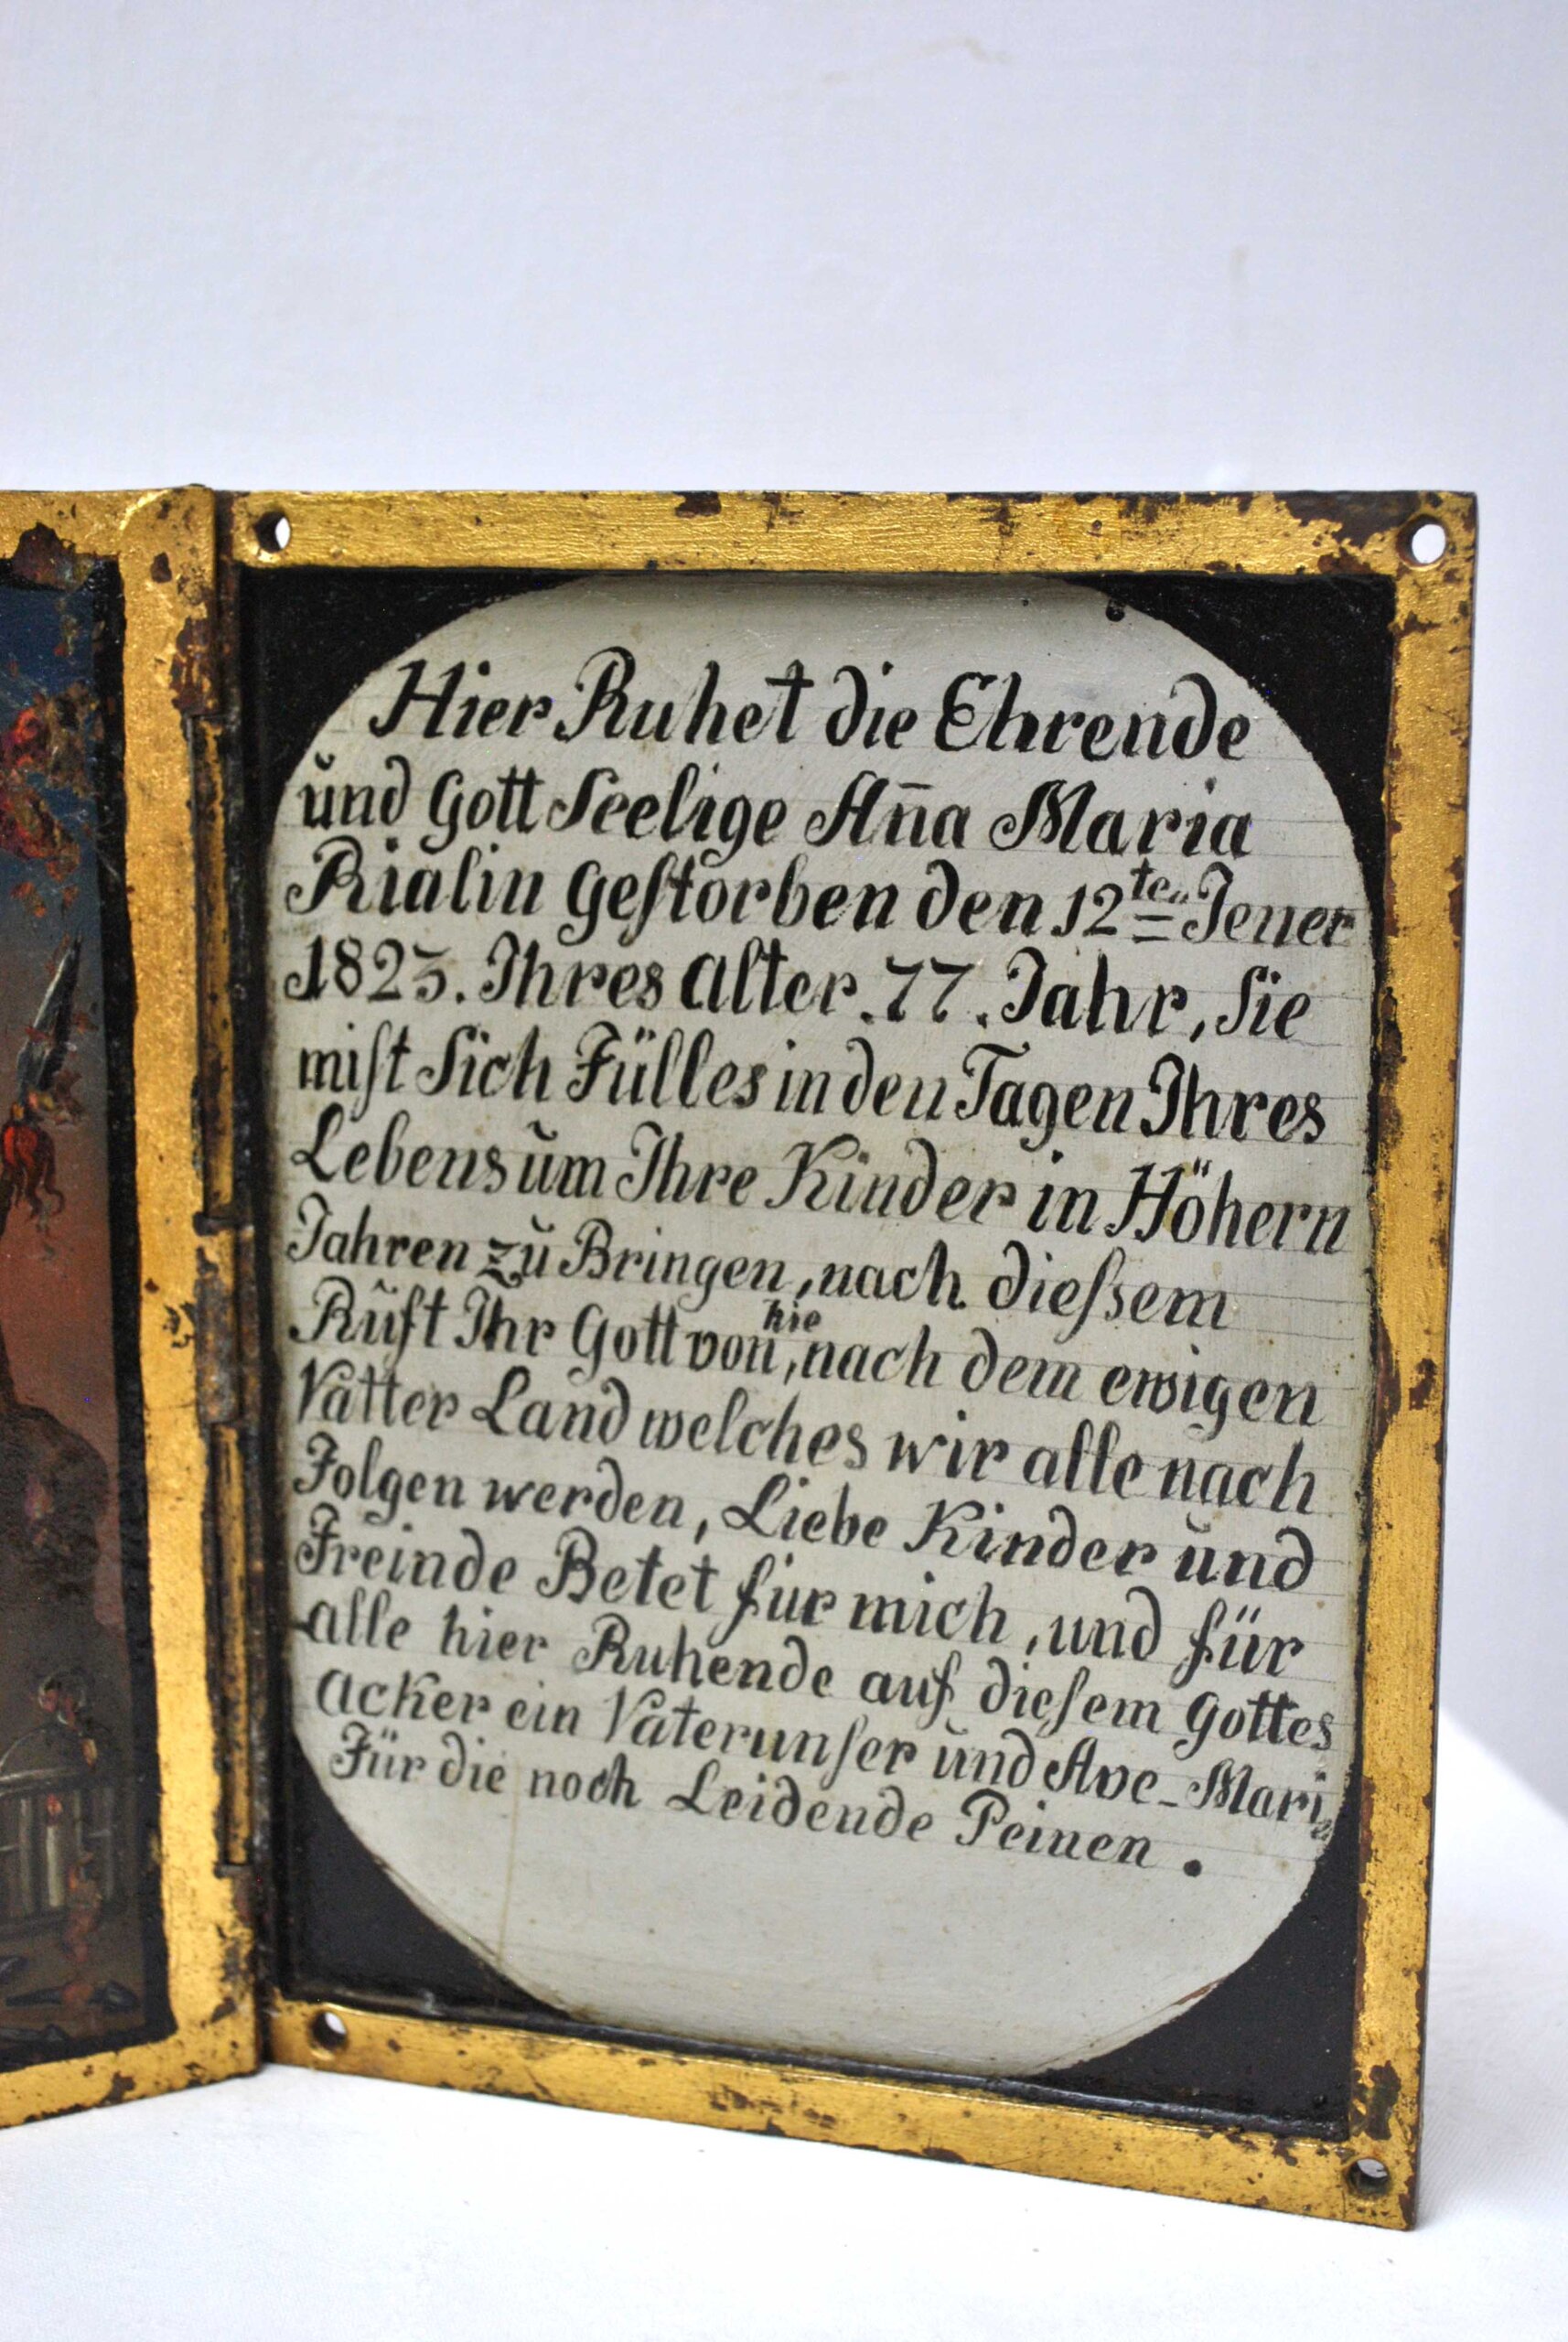 Hier Ruhet die Ehrende
und Gott Seelige An̄a Maria
Rialin Gestorben den 12ten Jener
1823. Ihres Alter. 77. Jahr, Sie
mist Sich Fülles in den Tagen Ihres
Lebens um Ihre Kinder in Höhern
Jahren zu Bringen, nach diessem
Ruft Ihr Gott von hie, nach dem ewigen
Vatter Land welches wir alle nach
Folgen werden, Liebe Kinder und
Freinde Betet für mich, und für
alle hier Ruhende auf diesem Gottes
acker ein Vaterunser und Ave-Maria
Für die noch Leidende Peinen.